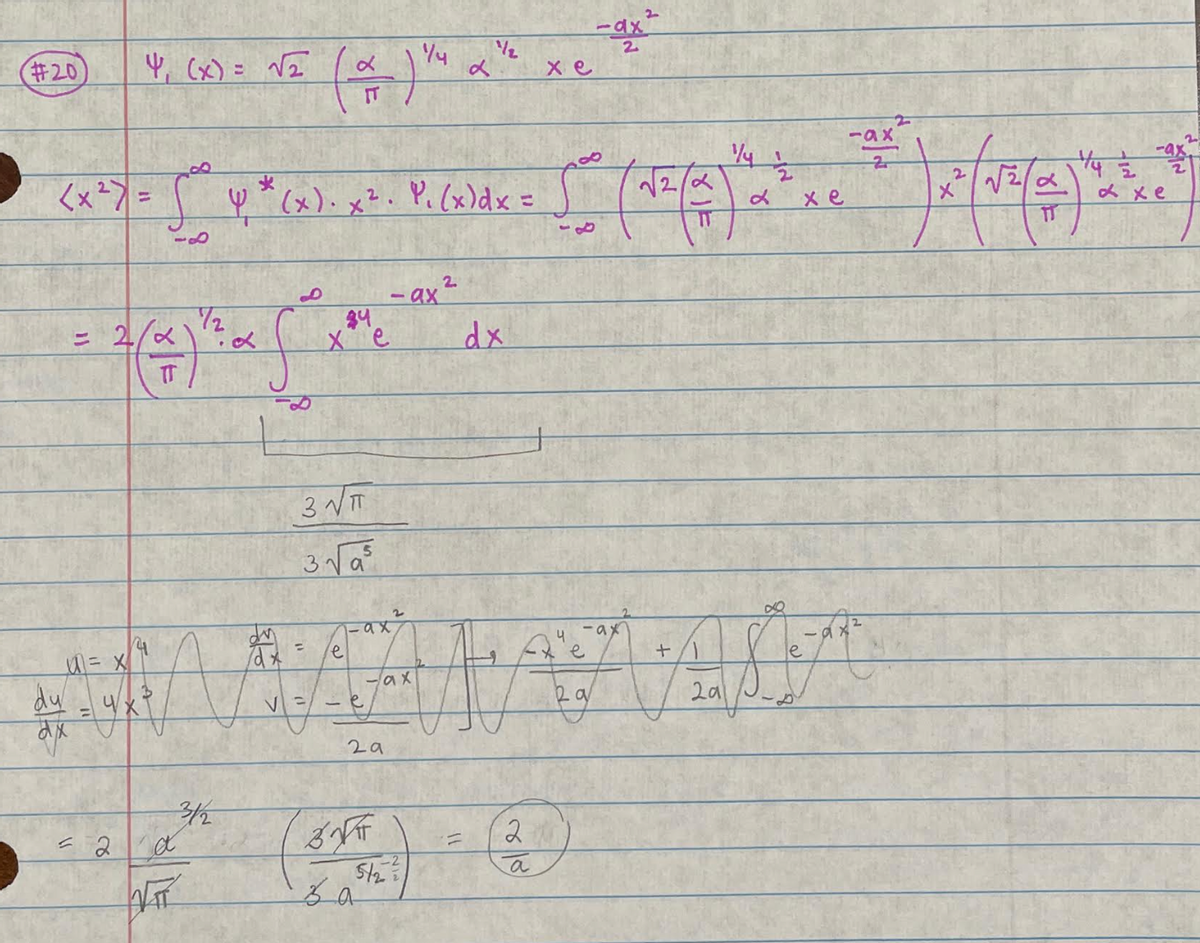 #20 Ψ₁ (x) = √2 (α/π)^1/4 α^1/2 x e^(-ax²/2)
⟨x²⟩ = ∫_-∞^∞ Ψ₁* (x) · x² · Ψ₁ (x) dx = ∫_-∞^∞ (√2 (α/π)^1/4 α^1/2 x e^(-ax²/2)) x² (√2 (α/π)^1/4 α^1/2 x e^(-ax²/2))
= 2 (α/π)^1/2 · α ∫_-∞^∞ x^4 e^(-ax²) dx
3√π / 3√a⁵
u = x⁴ dv/dx = e^(-ax²) ] → -x⁴e^(-ax²)/2a + 1/2a ∫_-∞^∞ e^(-ax²)
du/dx = 4x³ v = -e^(-ax²)/2a
= 2 α^3/2/√π (3√π / 3 a^(5/2 - 2/2)) = 2/a